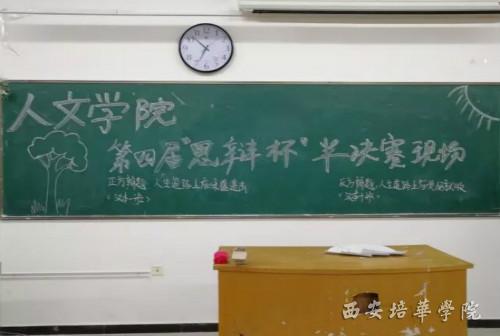 人文学院
第四届"思辩杯"半决赛现场
正方辩题 人生道路上应
正方辩题 人生道路上应
西安培華學院